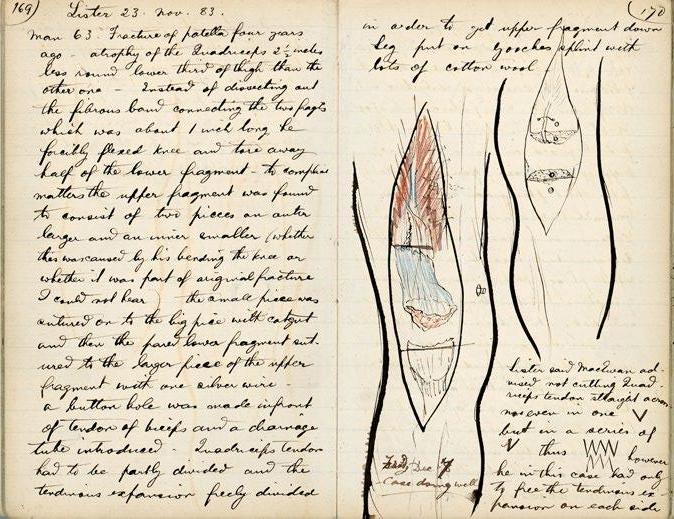 169)
Lister 23. Nov. 83.
Man 63 Fracture of patella four years
ago - atrophy of the Quadriceps 2½ inches
less round lower third of thigh than the
other one - Instead of dissecting out
the fibrous band connecting the two frags
which was about 1 inch long he
forcibly flexed knee and tore away
half of the lower fragment - to complicate
matters the upper fragment was found
to consist of two pieces an outer
larger and an inner smaller (whether
this was caused by his bending the knee or
whether it was part of original fracture
I could not hear the small piece was
sutured on to the big piece with catgut
and then the pared lower fragment sut-
ured to the larger piece of the upper
fragment with one silver wire -
a button hole was made in front
of tendon of biceps and a drainage
tube introduced - Quadriceps tendon
had to be partly divided and the
tendinous expansion freely divided
(170
in order to get upper fragment down
Leg put on Gooches splint with
lots of cotton wool
Lister said MacEwan ad-
vised not cutting Quad-
riceps tendon straight across
nor even in one V
but in a series of
V thus VVVV however
he in this case had only
to free the tendinous ex-
pansion on each side
Dec 7
Case doing well